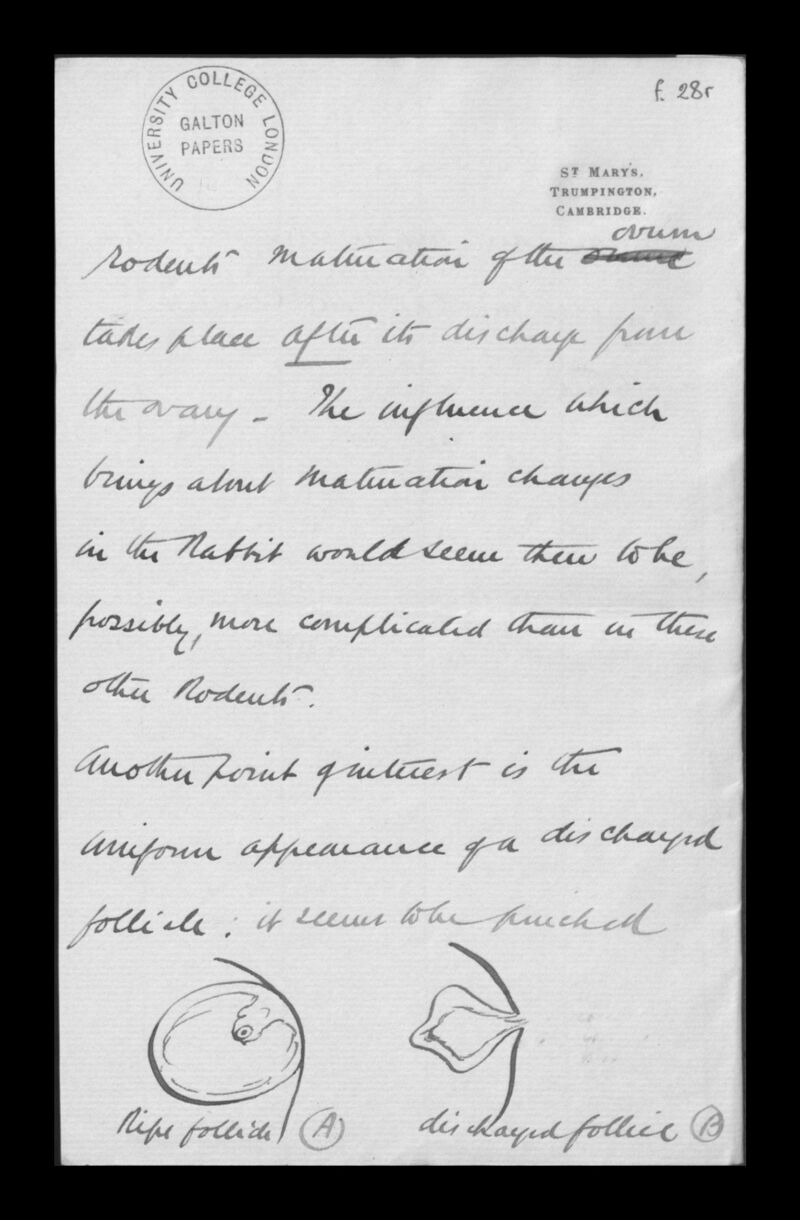 f. 28r
UNIVERSITY COLLEGE LONDON
GALTON
PAPERS
ST MARY'S,
TRUMPINGTON,
CAMBRIDGE.
ovum
rodents maturation of the
takes place after its discharge from
the ovary - The influence which
brings about maturation changes
in the Rabbit would seem then to be,
possibly, more complicated than in these
other Rodents.
Another point of interest is the
uniform appearance of a discharged
follicle; it seems to be pinched
Ripe follicle A
discharged follicle B